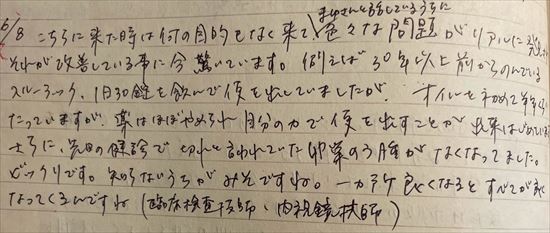 6/8 こちらに来た時は何の目的もなく来て、まゆさんと話をしているうちに
色々な問題がリアルに
それが改善している事に今驚いています。例えば30年以上前からのんでいる
スルーラック、1日30錠を飲んで便を出していましたが、オイルを
たっていますが、薬はほぼやめられ自分の力で便を出すことが出来はじめている
さらに、先日の健診で切れと言われていた卵巣のう腫がなくなってました。
ビックリです。知らないうちがみそですね。一カ所良くなると すべてが良く
なってくるんですね (臨床検査技師、内視鏡技師)